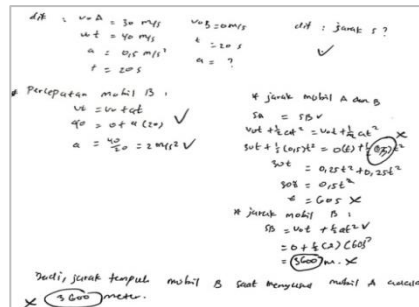 dik : v₀A = 30 m/s
vt = 40 m/s
a = 0,5 m/s²
t = 20 s
v₀B = 0 m/s
t = 20 s
a = ?
dit : jarak s ?
* Percepatan mobil B :
vt = v₀ + at
40 = 0 + a (20)
a = 40/20 = 2 m/s²
* jarak mobil A dan B
SA = SB
v₀t + ½at² = v₀t + ½at²
30t + ½ (0,5)t² = 0(t) + ½ (0,5)t²
30t = 0,25t² + 0,25t²
30t = 0,5t²
t = 60 s
* jarak mobil B :
SB = v₀t + ½at²
= 0 + ½ (2) (60)²
= 3600 m.
Jadi, jarak tempuh mobil B saat menyusul mobil A adalah
3600 meter.